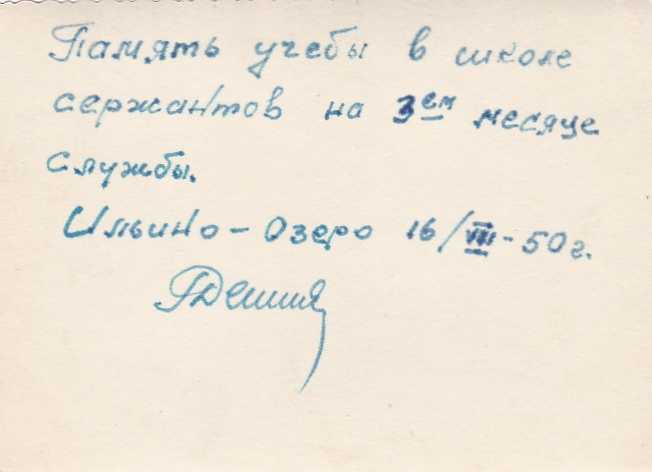 Память учебы в школе
сержантов на 3ем месяце
службы.
Ильино-Озеро 16/VIII-50г.